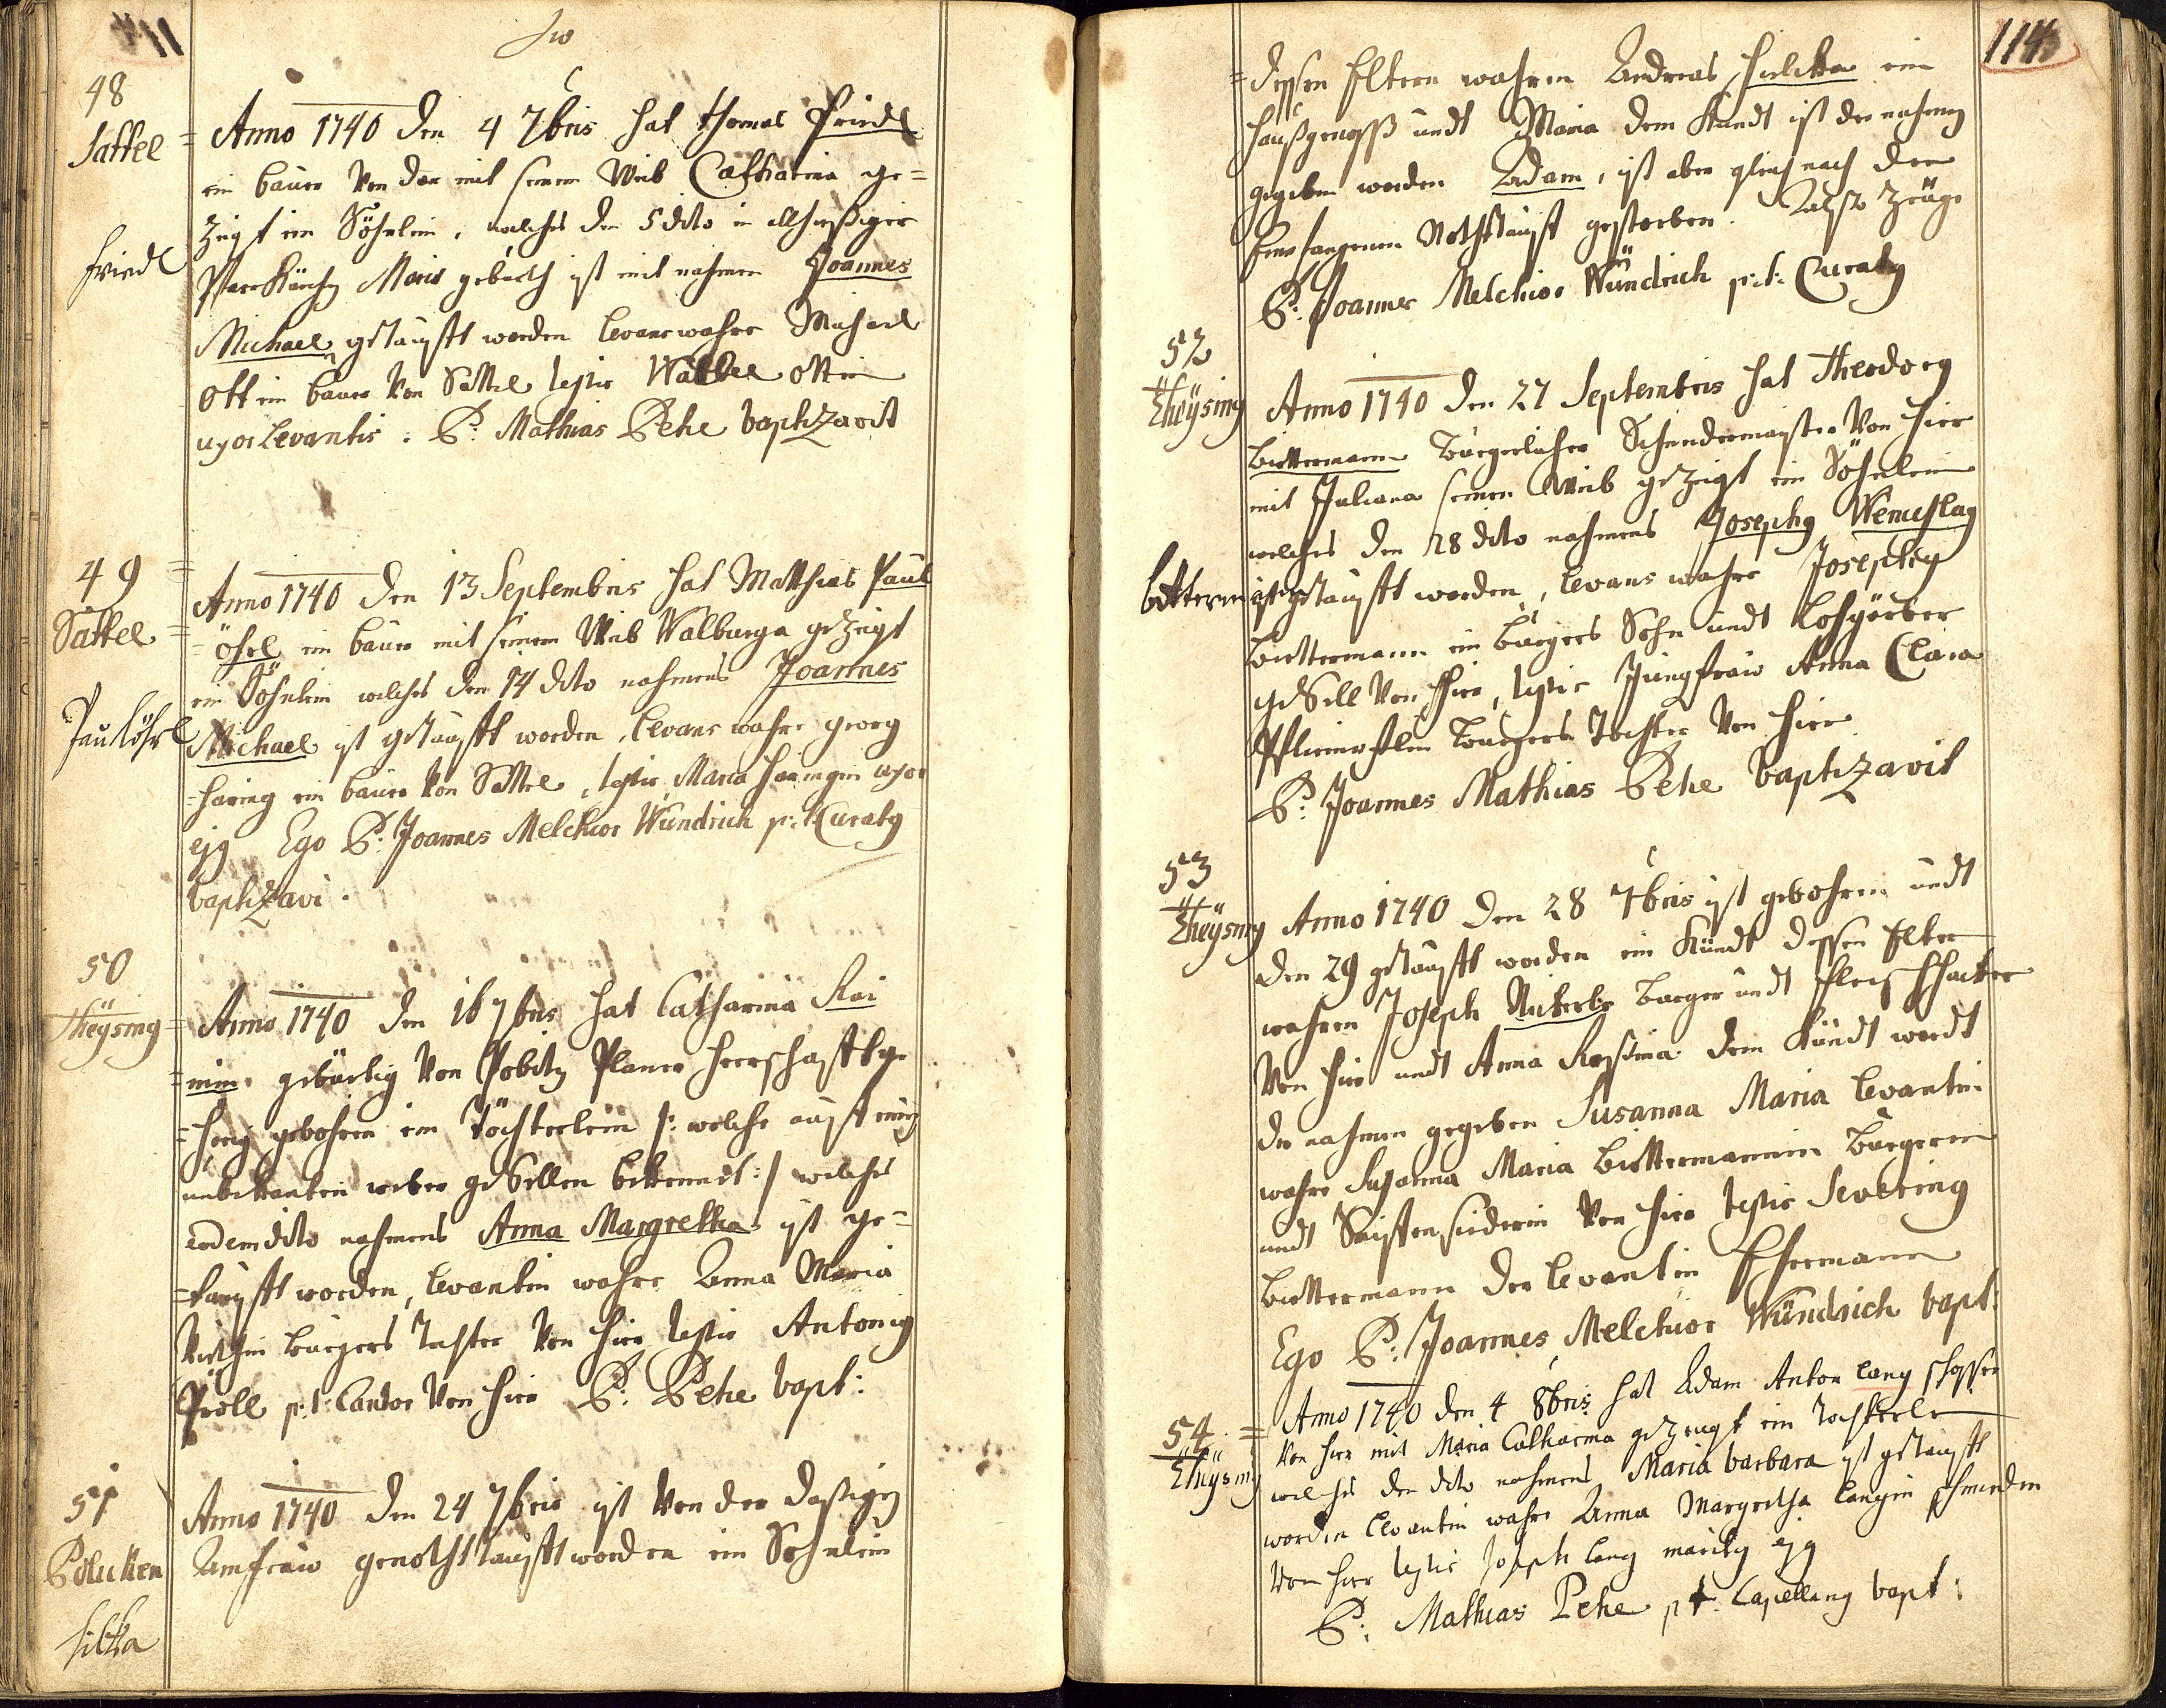 48
Sattel
Anno 1740 den 4 7bris hat Thomas Friedl
ein baur von dar mit seinem Weib Catharina ge=
zeigt ein Söhnlein, welches den 5 dito in
Friedl
Pfarr Kürchen ist mit nahmen Joannes
Michael getaufft worden levans wahre Michael
Ott ein baur von Sattel testis Ottin
uxor levantis. P: Mathias Pehe baptizavit
49
Sattel
Anno 1740 den 13 Septembris hat Matthias Paul
=öhrl ein baur mit seinem Weib Walburga gezeigt
ein Söhnlein welches den 14 dito nahmens Joannes
Paulöhrl
Michael ist getaufft worden, levans wahre georg
haring ein baur von Sattel, testis Maria haringin uxor
ejg Ego P: Joannes Melchior Wündrich p:t: Curatg
baptizavi.
50
Theÿsing
Anno 1740 den 16 7bris hat Catharina Rai
=nin gebürtig von Planer herrschafft ge
=hörig gebohren ein Töchterlein /: welche auff einen
unbekanten weber gesellen bekennet :/ welches
eodem dito nahmens Anna Margretha ist ge=
=taufft worden, levantin wahre Anna Maria
bürgers Tochter von hier testis Antonig
Pröll p:t: Cantor von hier P: Pehe bapt:
51
Policken
Anno 1740 den 24 7bris ist von der dasigen
Amfrau genothtaufft worden ein Söhnlein
hilitka
114
=dessen Eltern wahren Andreas hilitka ein
haußgenoß undt Maria dem Kündt ist der nahmen
gegeben worden Adam, ist aber gleich nach der
Empfangenen Nothtauff gestorben. Zeüge
P: Joannes Melchior Wündrich p:t: Curatg
52
Theÿsing
Anno 1740 den 27 Septembris hat Theodorg
Bittermann bürgerlicher Schneidermeister von hier
mit Juliana seinem Weib gezeigt ein Söhnlein
welches den 28 dito nahmens Josephg Wenceslag
bitterm
ist getaufft worden, levans wahre Josephg
Bittermann ein bürgers Sohn undt Lohgerber
gesell von hier, testis Jungfrau Anna Clara
bürgers Tochter von hier
P: Joannes Mathias Pehe baptizavit
53
Theÿsing
Anno 1740 den 28 7bris ist gebohren undt
den 29 getaufft worden ein Kündt dessen Eltern
wahren Joseph Burger undt Fleischhacker
von hier undt Anna Rosina dem Kündt wurdt
der nahmen gegeben Susanna Maria levantin
wahre Susanna Maria Bittermannin bürgerin
undt Saiffensiederin von hier testis Severing
Bittermann der levantin Ehemann
Ego P: Joannes Melchior Wündrich bapt:
54
Theÿsing
Anno 1740 den 4 8bris hat Adam Anton lang
von hier mit Maria Catharina gezeugt ein Tochterle
welches den dito nahmens Maria barbara ist getaufft
worden levantin wahre Anna Margretha langin
von hier testis Joseph lang maritg ejg
P: Mathias Pehe p:t: Capellang bapt: